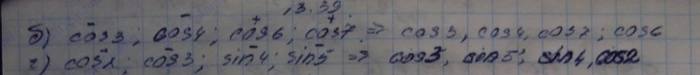 13.39
б) cos3; cos4; cos6; cos7 => cos3, cos4, cos7; cos6
г) cos2; cos3; sin4; sin5 => cos3, sin5; sin4, cos2